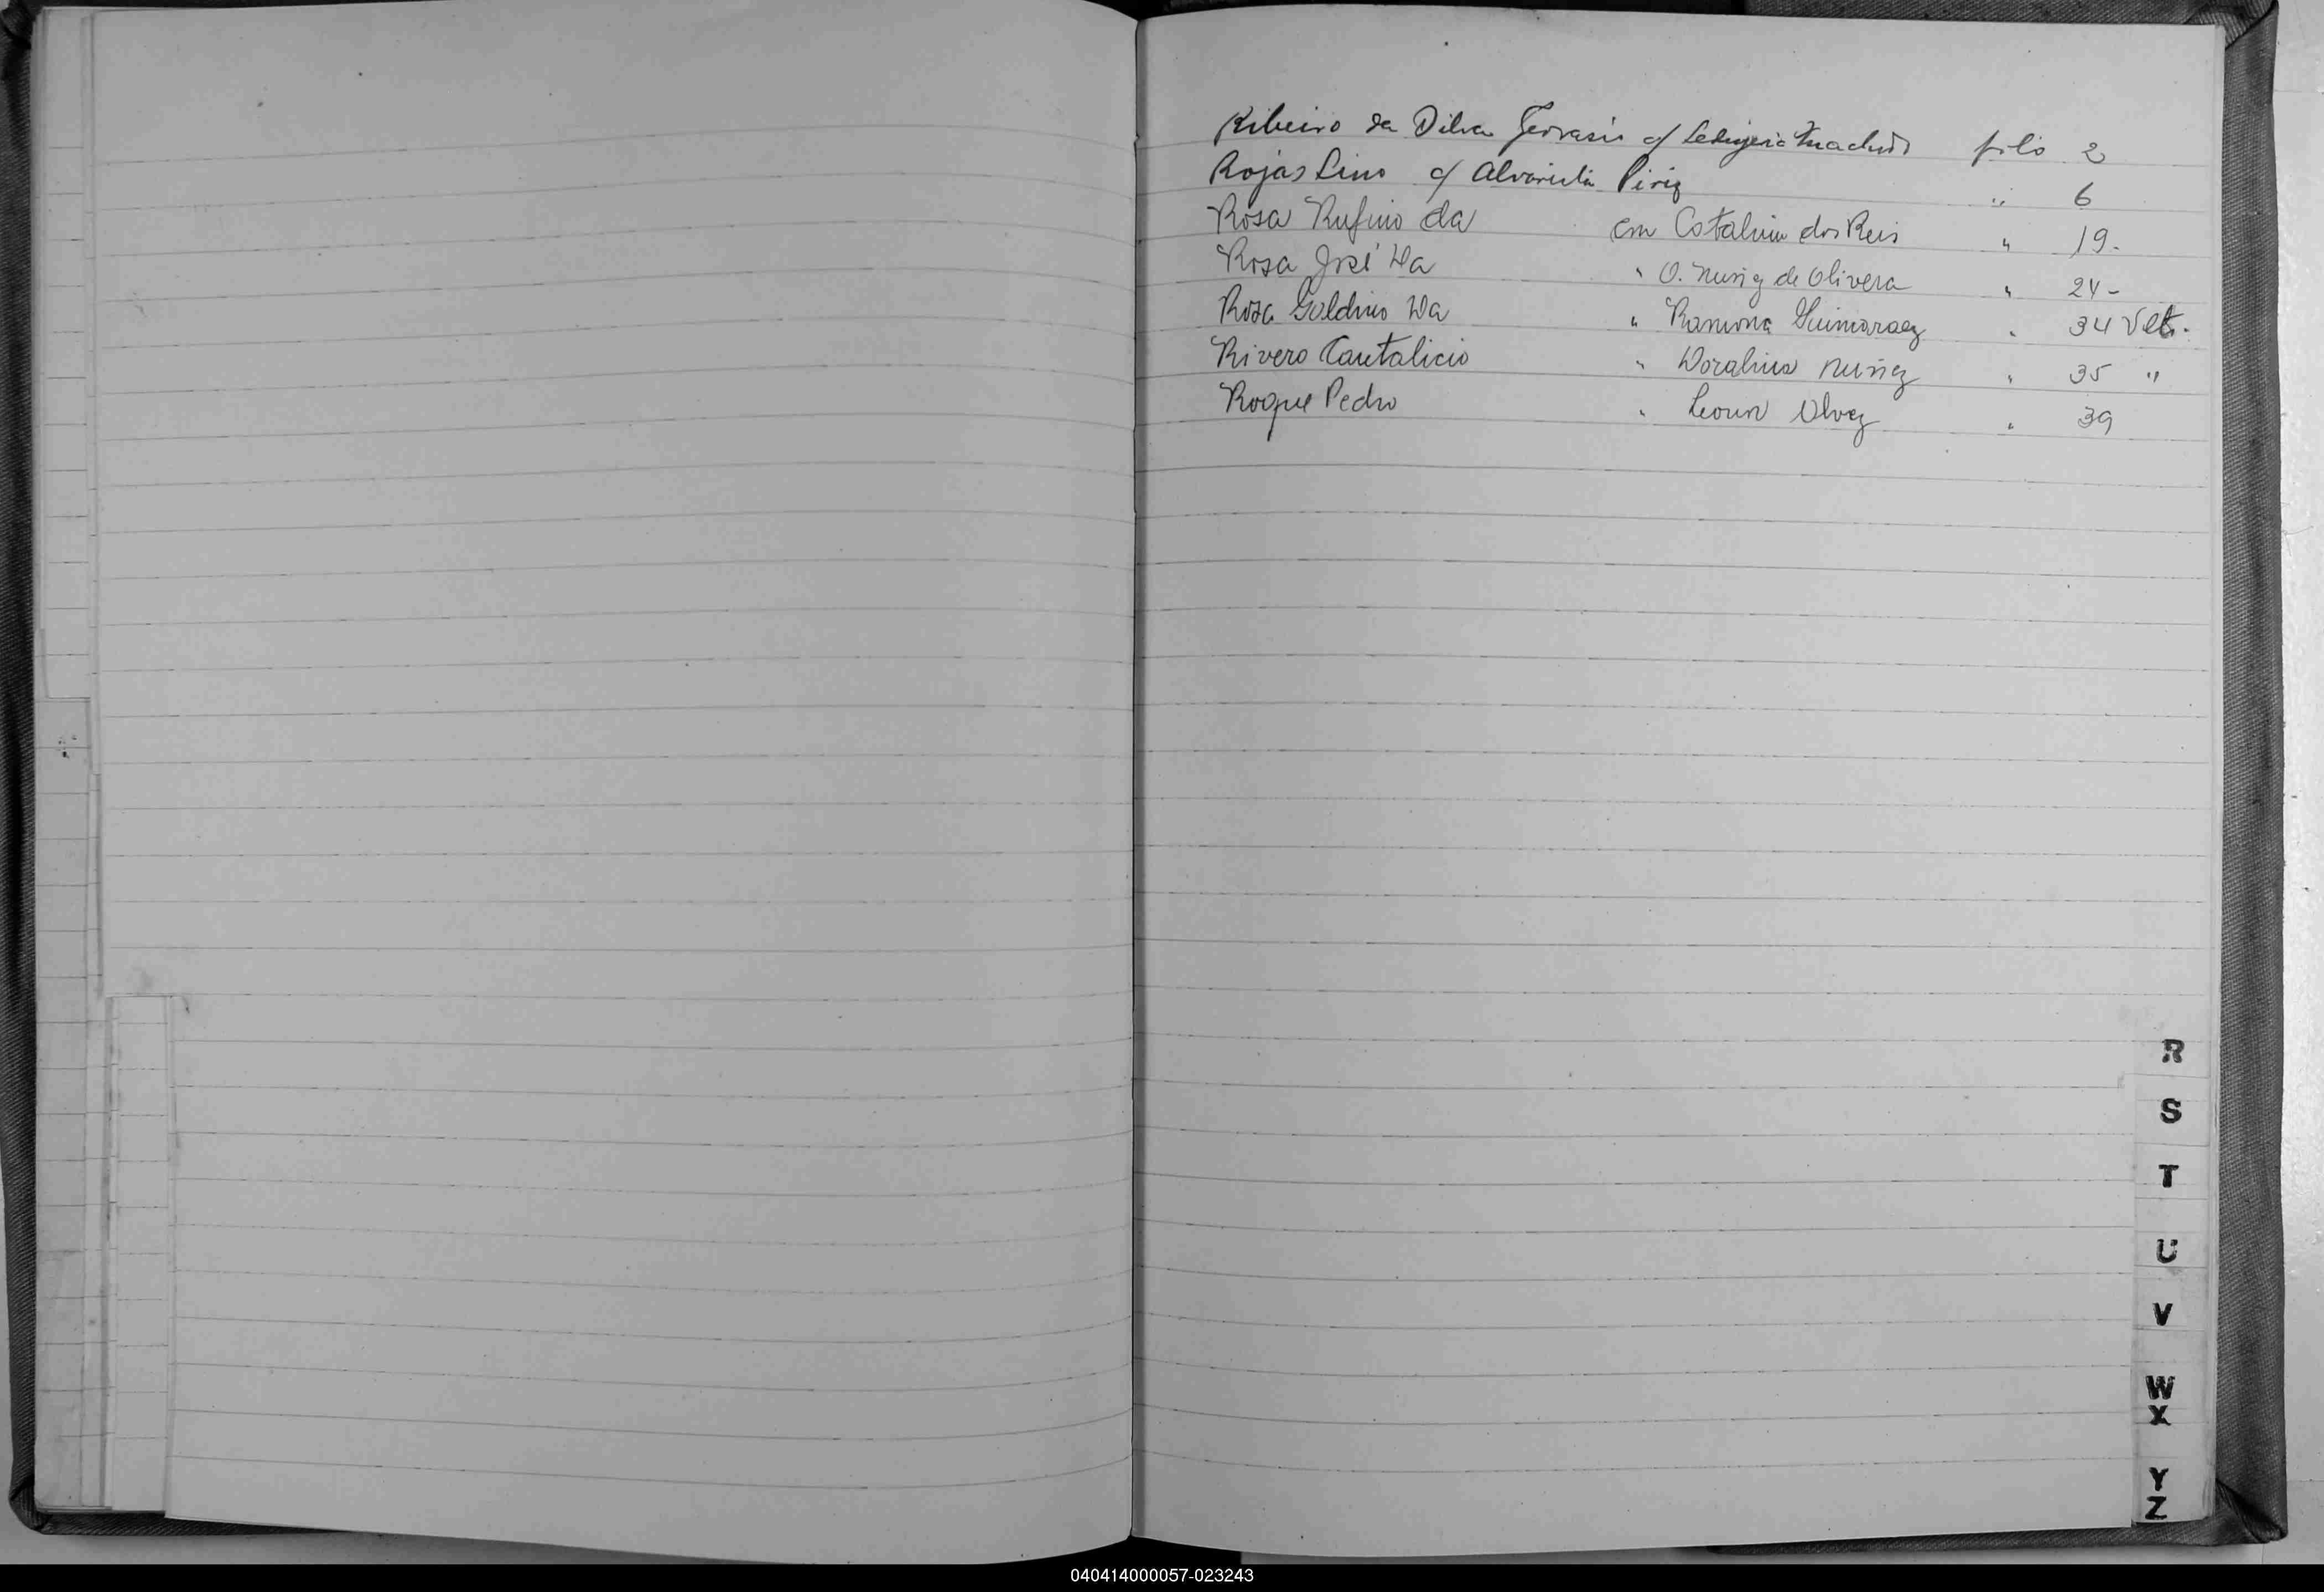 Ribeiro da Silva Gervasio c/ Machado folio 2
Rojas Lino c/ Alvarista Piriz " 6
Rosa Rufino da con Catalina dos Reis " 19-
Rosa José Da " O. Nuñez de Olivera " 24-
Rosa Galdino Da " Ramona Guimaraez " 34 Vlta.
Rivero Cantalicio " Doralina Nuñez " 35 "
Roque Pedro " Alvez " 39
R
S
T
U
V
W
X
Y
Z
040414000057-023243